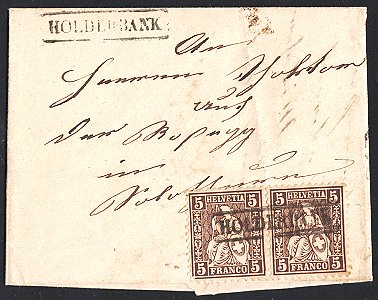 HOLDERBANK
An
Herren Doktor
auf
der
in
Solothurn
5 HELVETIA 5
5 FRANCO 5
5 HELVETIA 5
5 FRANCO 5
HOLDERBANK